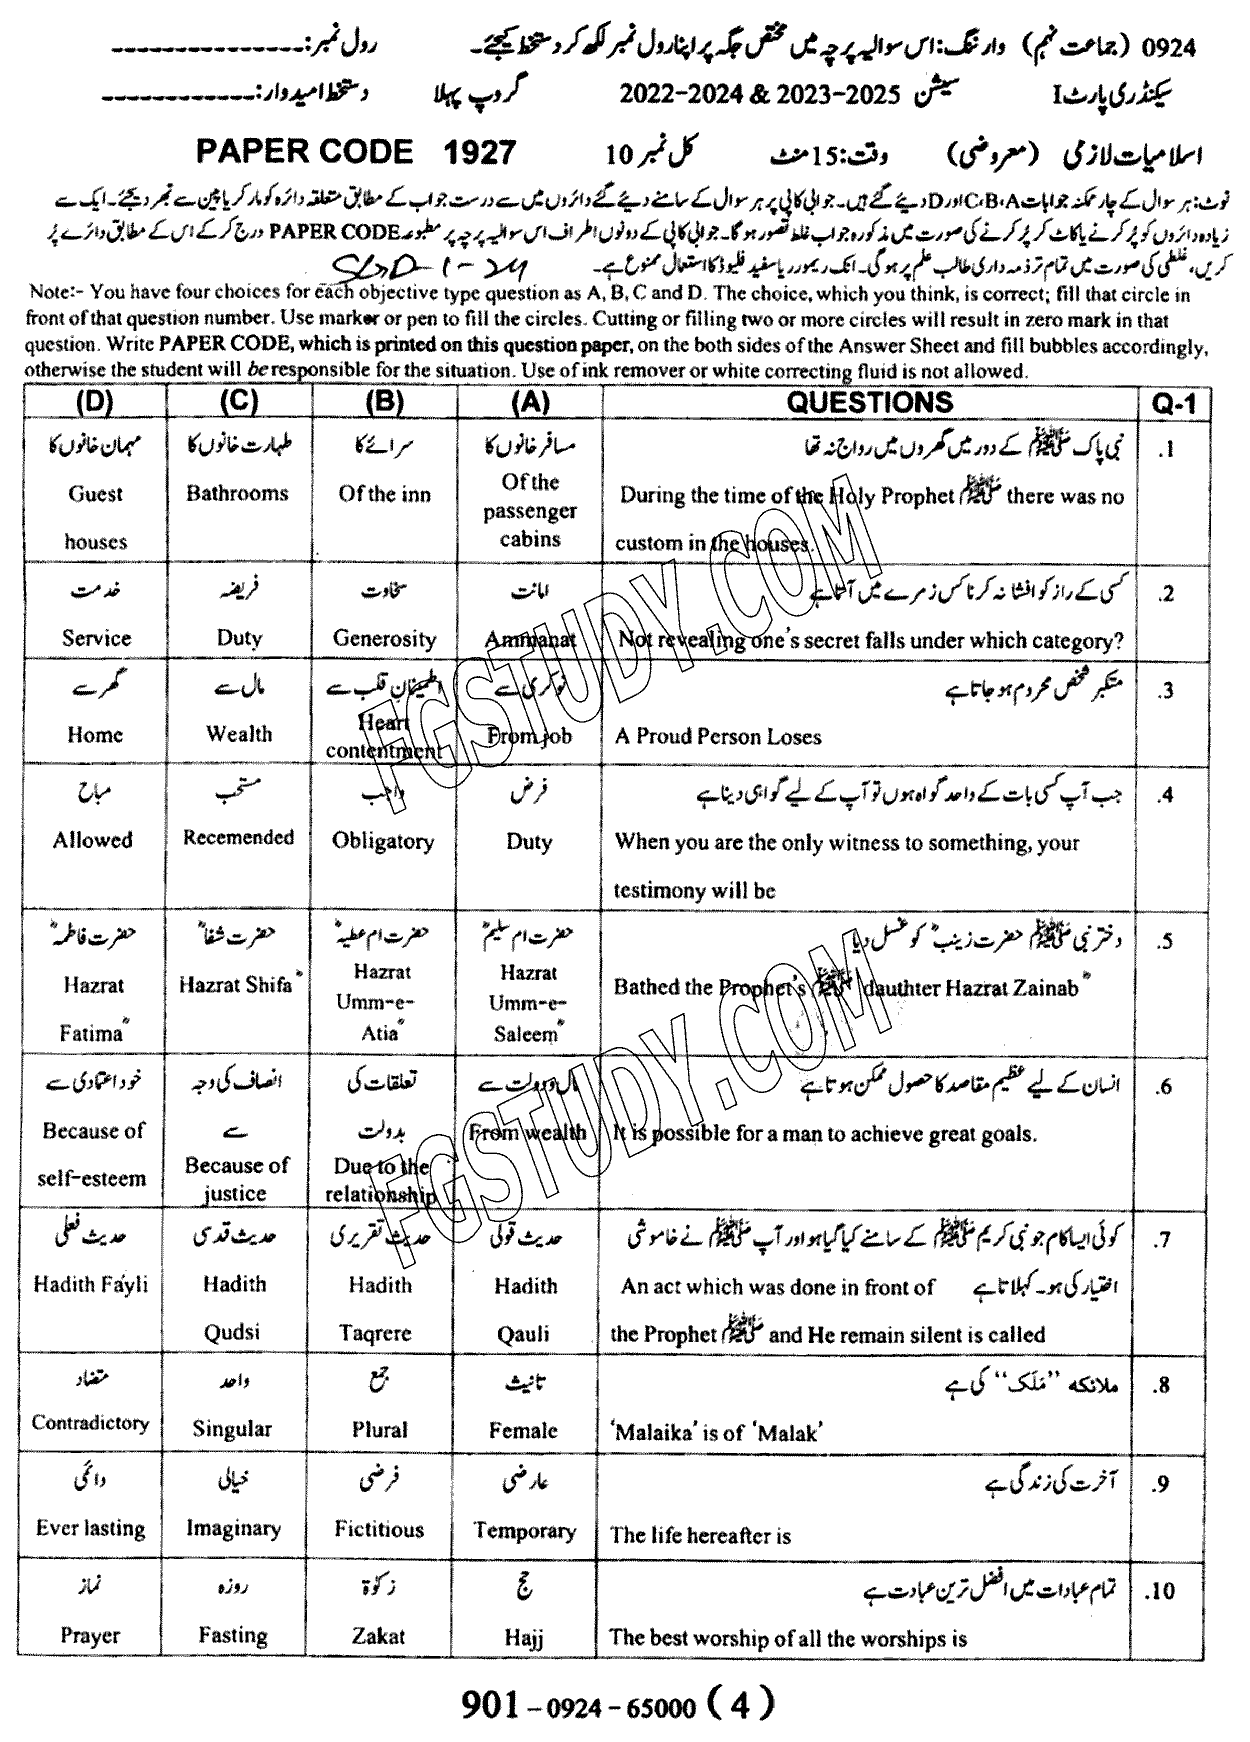 0924 (جماعت نہم) وارننگ: اس سوالیہ پرچہ میں مختص جگہ پر اپنا رول نمبر لکھ کر دستخط کیجئے۔ رول نمبر: ---------------
سیکنڈری پارٹ I سیشن 2023-2025 & 2022-2024 گروپ پہلا دستخط امیدوار: ------------
اسلامیات لازمی (معروضی) وقت: 15 منٹ کل نمبر 10 PAPER CODE 1927
نوٹ: ہر سوال کے چار ممکنہ جوابات A، B، C اور D دیئے گئے ہیں۔ جوابی کاپی پر ہر سوال کے سامنے دیئے گئے دائروں میں سے درست جواب کے مطابق متعلقہ دائرہ کو مارکر یا پین سے بھر دیجئے۔ ایک سے
زیادہ دائروں کو پُر کرنے یا کاٹ کر پُر کرنے کی صورت میں مذکورہ جواب غلط تصور ہوگا۔ جوابی کاپی کے دونوں اطراف اس سوالیہ پرچہ پر مطبوعہ PAPER CODE درج کر کے اس کے مطابق دائرے پُر
کریں، غلطی کی صورت میں تمام تر ذمہ داری طالب علم پر ہوگی۔ انک ریموور یا سفید فلیوڈ کا استعمال ممنوع ہے۔
Note:- You have four choices for each objective type question as A, B, C and D. The choice, which you think, is correct; fill that circle in
front of that question number. Use marker or pen to fill the circles. Cutting or filling two or more circles will result in zero mark in that
question. Write PAPER CODE, which is printed on this question paper, on the both sides of the Answer Sheet and fill bubbles accordingly,
otherwise the student will be responsible for the situation. Use of ink remover or white correcting fluid is not allowed.
(D) (C) (B) (A) QUESTIONS Q-1
مہمان خانوں کا طہارت خانوں کا سرائے کا مسافر خانوں کا نبی پاک ﷺ کے دور میں گھروں میں رواج نہ تھا .1
Guest houses
Bathrooms
Of the inn
Of the passenger cabins
During the time of the Holy Prophet ﷺ there was no
custom in the houses.
خدمت فریضہ سخاوت امانت کسی کے راز کو افشا نہ کرنا کس زمرے میں آتا ہے .2
Service Duty Generosity Ammanat Not revealing one's secret falls under which category?
گھر سے مال سے اطمینانِ قلب سے نوکری سے متکبر شخص محروم ہو جاتا ہے .3
Home Wealth Heart contentment From job A Proud Person Loses
مباح مستحب واجب فرض جب آپ کسی بات کے واحد گواہ ہوں تو آپ کے لیے گواہی دینا ہے .4
Allowed Recemended Obligatory Duty When you are the only witness to something, your
testimony will be
حضرت فاطمہؓ حضرت شفاؓ حضرت ام عطیہؓ حضرت ام سلیمؓ دختر نبی ﷺ حضرت زینبؓ کو غسل دیا .5
Hazrat Fatima
Hazrat Shifa
Hazrat Umm-e-Atia
Hazrat Umm-e-Saleem
Bathed the Prophet's ﷺ dauthter Hazrat Zainab
خود اعتمادی سے انصاف کی وجہ سے تعلقات کی بدولت مال و دولت سے انسان کے لیے عظیم مقاصد کا حصول ممکن ہوتا ہے .6
Because of self-esteem
Because of justice
Due to the relationship
From wealth
It is possible for a man to achieve great goals.
حدیث فعلی حدیث قدسی حدیث تقریری حدیث قولی کوئی ایسا کام جو نبی کریم ﷺ کے سامنے کیا گیا ہو اور آپ ﷺ نے خاموشی .7
اختیار کی ہو۔ کہلاتا ہے
Hadith Fayli
Hadith Qudsi
Hadith Taqrere
Hadith Qauli
An act which was done in front of
the Prophet ﷺ and He remain silent is called
متضاد واحد جمع تانیث ملائکہ "مَلَک" کی ہے .8
Contradictory Singular Plural Female 'Malaika' is of 'Malak'
دائمی خیالی فرضی عارضی آخرت کی زندگی ہے .9
Ever lasting Imaginary Fictitious Temporary The life hereafter is
نماز روزہ زکوٰۃ حج تمام عبادات میں افضل ترین عبادت ہے .10
Prayer Fasting Zakat Hajj The best worship of all the worships is
901-0924-65000 (4)
FGSTUDY.COM
FGSTUDY.COM